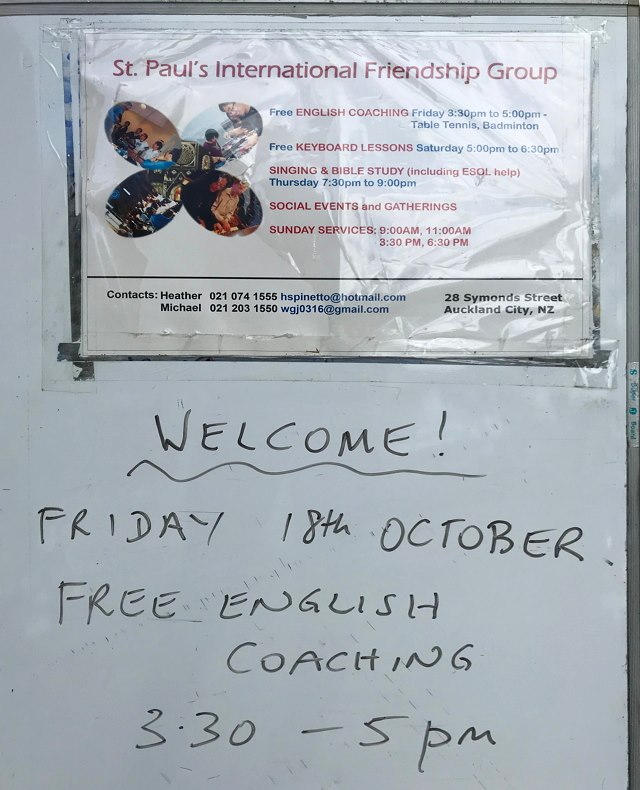 St. Paul's International Friendship Group
Free ENGLISH COACHING Friday 3:30pm to 5:00pm -
Table Tennis, Badminton
Free KEYBOARD LESSONS Saturday 5:00pm to 6:30pm
SINGING & BIBLE STUDY (including ESOL help)
Thursday 7:30pm to 9:00pm
SOCIAL EVENTS and GATHERINGS
SUNDAY SERVICES: 9:00AM, 11:00AM
3:30 PM, 6:30 PM
Contacts: Heather 021 074 1555 hspinetto@hotmail.com
Michael 021 203 1550 wgj0316@gmail.com
28 Symonds Street
Auckland City, NZ
WELCOME!
FRIDAY 18th OCTOBER.
FREE ENGLISH
COACHING
3.30 - 5pm